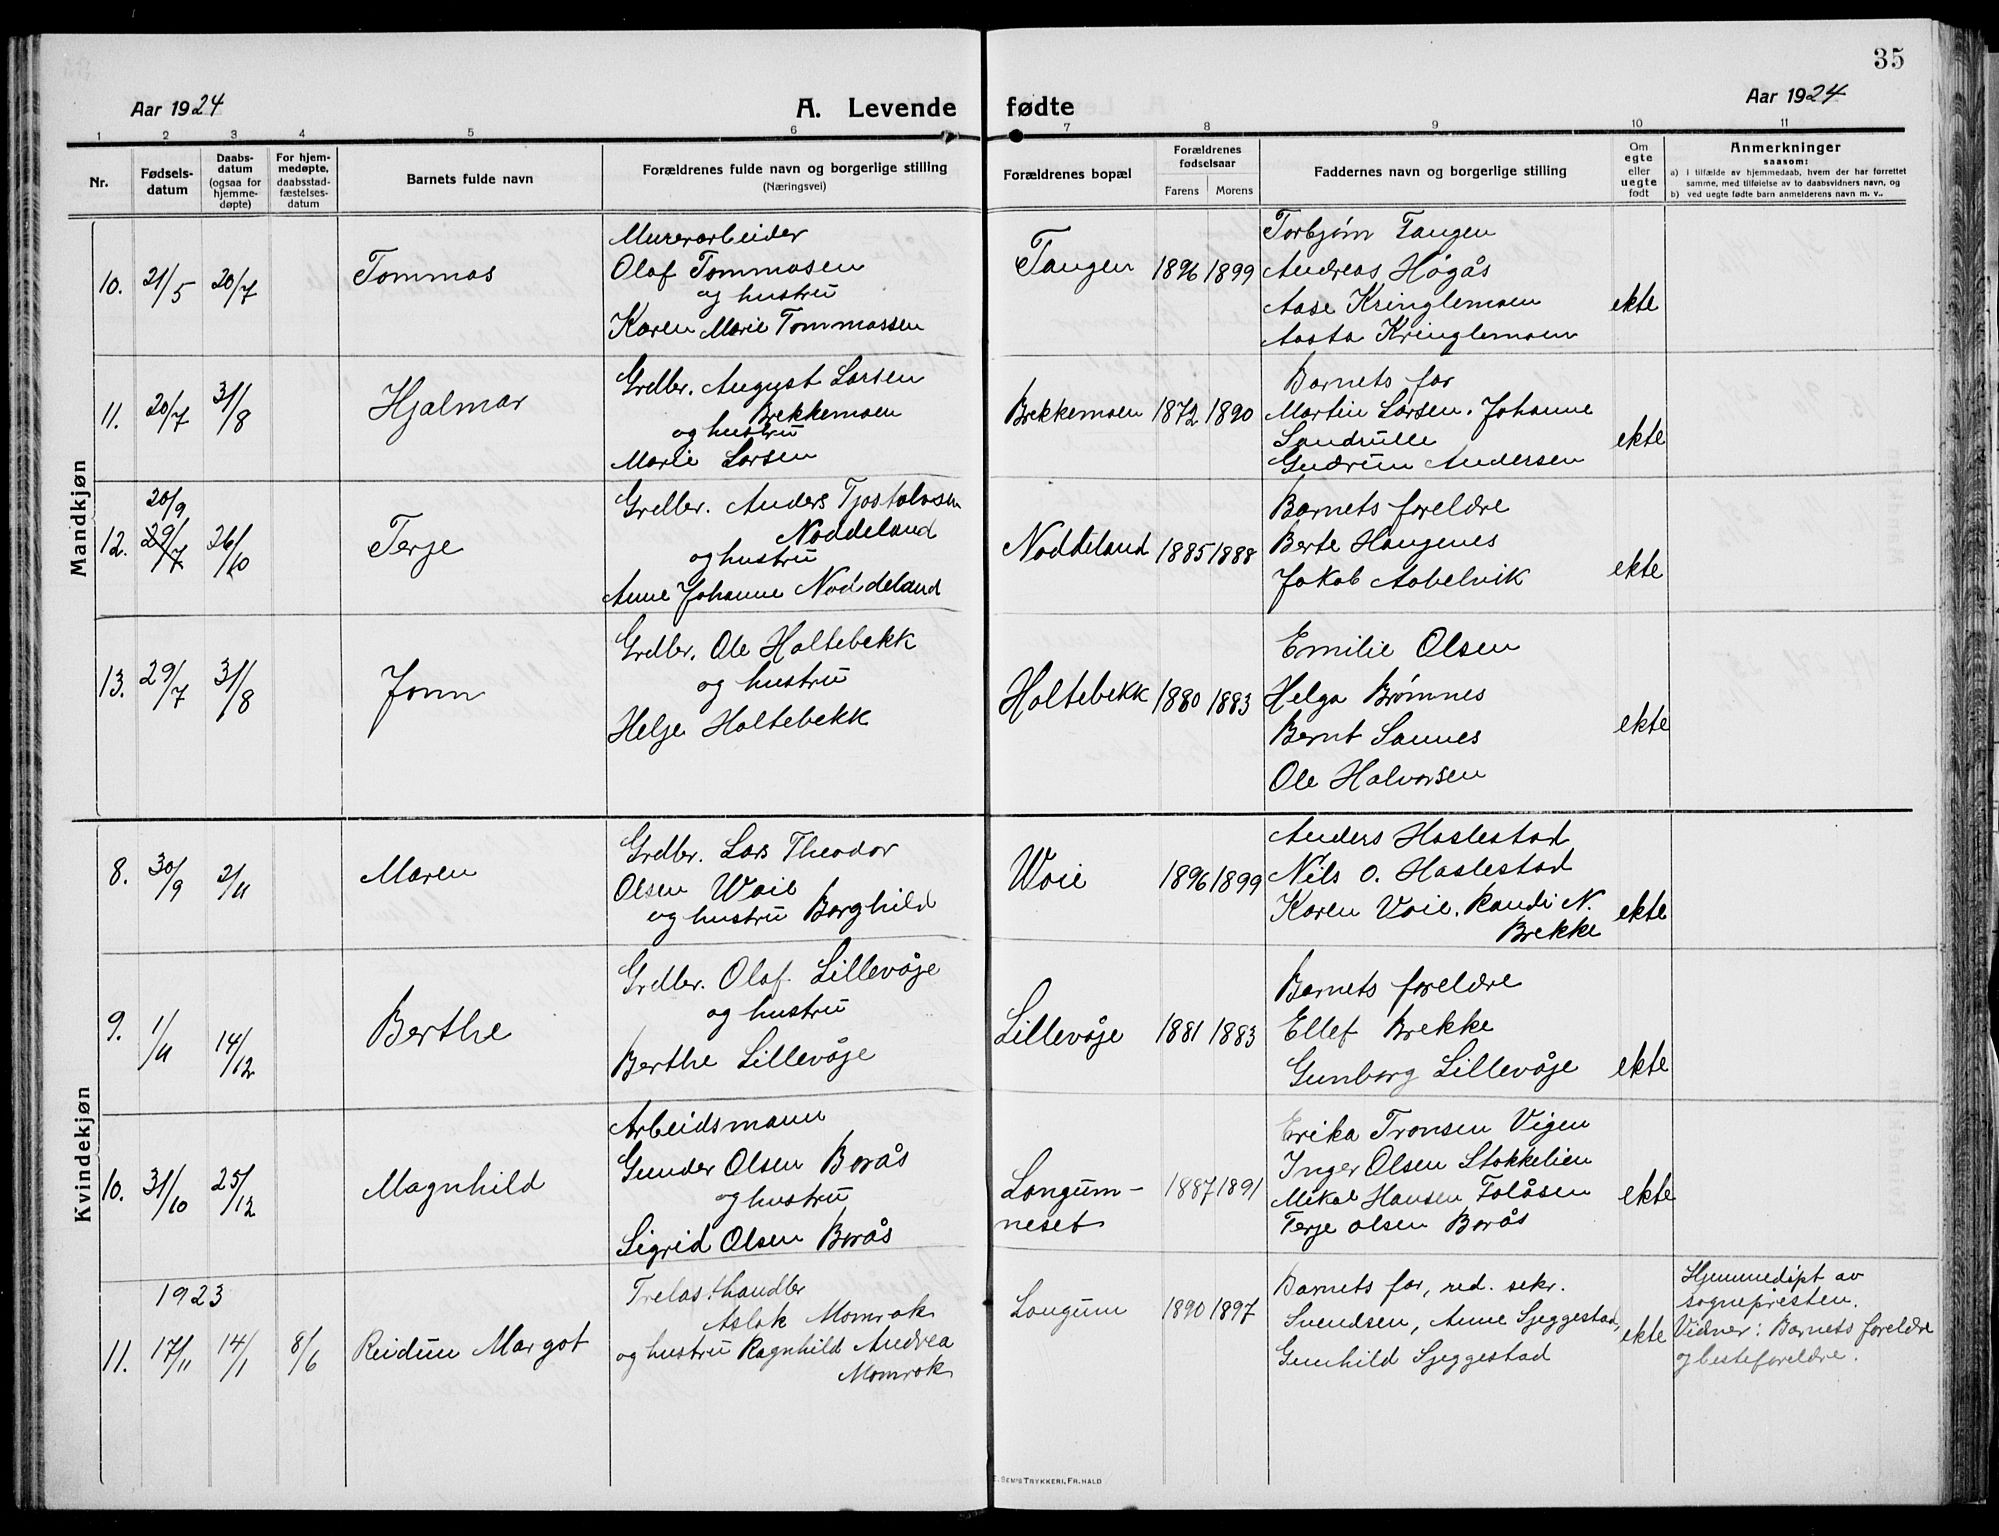 35
Aar 1924
A. Levende fødte
Aar 1924
1 2 3 4 5 6 7 8 9 10 11
Nr.
Fødsels-
datum
Daabs-
datum
(ogsaa for
hjemme-
døpte)
For hjem-
medøpte,
daabsstad-
fæstelses-
datum
Barnets fulde navn
Forældrenes fulde navn og borgerlige stilling
(Næringsvei)
Forældrenes bopæl
Forældrenes
fødselsaar
Farens Morens
Faddernes navn og borgerlige stilling
Om
egte
eller
uegte
født
Anmerkninger
saasom:
a) i tilfælde av hjemmedaab, hvem der har forrettet
samme, med tilføielse av to daabsvidners navn, og
b) ved uegte fødte barn anmelderens navn m. v..
Mandkjøn
10. 21/5 20/7
Tommas
Murerarbeider
Olaf Tommasen
og hustru
Karen Marie Tommassen
Tangen
1896 1899
Torbjørn Tangen
Andreas Høgås
Aase Kringlemoen
Aasta Kringlemoen
ekte
11. 20/7 31/8
Hjalmar
Grdbr. August Larsen
Brekkemoen
og hustru
Marie Larsen
Brekkemoen
1872 1890
Barnets far
Martin Larsen. Johanne
Sandrulle
Gudrun Andersen
ekte
20/9
12. 29/7 26/10
Terje
Grdbr. Anders Tjostolvsen
Noddeland
og hustru
Anne Johanne Noddeland
Noddeland
1885 1888
Barnets foreldre
Berte Haugenes
Jakob Aabelvik
ekte
13. 29/7 31/8
Jonn
Grdbr. Ole Holtebekk
og hustru
Helje Holtebekk
Holtebekk
1880 1883
Emilie Olsen
Helga Brømnes
Bernt Sannes
Ole Halvorsen
ekte
Kvindekjøn
8. 30/9 2/11
Maren
Grdbr. Lars Theodor
Olsen Woie
og hustru Borghild
Woie
1896 1899
Anders Haslestad
Nils O. Haslestad
Karen Voie. Randi N.
Brekke
ekte
9. 1/11 14/12
Berthe
Grdbr. Olaf Lillevåje
og hustru
Berthe Lillevåje
Lillevåje
1881 1883
Barnets foreldre
Ellef Brekke
Gunborg Lillevåje
ekte
10. 31/10 25/12
Magnhild
Arbeidsmann
Gunder Olsen Borås
og hustru
Sigrid Olsen Borås
Longum-
neset
1887 1891
Erika Tronsen Vigen
Inger Olsen Stokkelien
Mikal Hansen Folåsen
Terje Olsen Borås
ekte
1923
11. 17/11 14/1 8/6
Reidun Margot
Trelasthandler
Aslak Momrak
og hustru Ragnhild Andrea
Momrak
Longum
1890 1897
Barnets far, red. sekr.
Svendsen, Anne Sjeggestad,
Gunhild Sjeggestad
ekte
Hjemmedøpt av
sognepresten.
Vidner: Barnets foreldre
og besteforeldre.
E. SEM'S TRYKKERI, FR.HALD